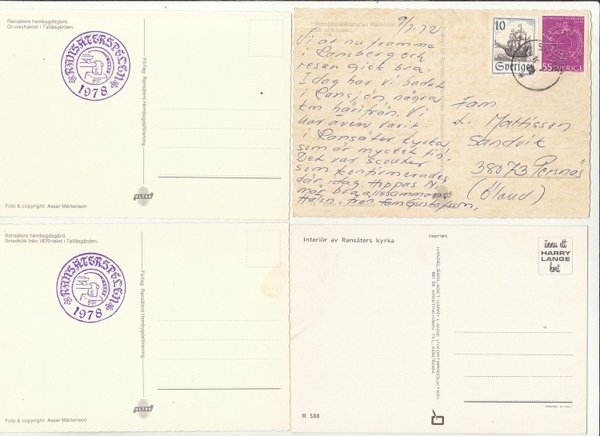 Ransäters hembygdsgård.
Gruvschaktet i Tallåsgården.
RANSÄTERSPELEN
1978
Förlag: Ransäters Hembygdsförening
ULTRA
Foto & copyright: Assar Mårtenson
9/7-72
Vi är nu framme
i Ransberg och
resan gick bra.
Idag har vi badat
i Ransjön, några
km härifrån. Vi
har även varit
i Ransäter kyrka
som är mycket fin.
Det var scouter
som konfirmerades
där idag. Hoppas Ni
mår bra allesammans
Hälsn. från fam Gustafsson.
10
Sverige
55 SVERIGE
Fam
L. Mattisson
Sandvik
38073 Persnäs
(Öland)
Ransäters hembygdsgård.
Smedkök från 1870-talet i Tallåsgården.
RANSÄTERSPELEN
1978
Förlag: Ransäters Hembygdsförening
ULTRA
Foto & copyright: Assar Mårtenson
Interiör av Ransäters kyrka
Copyright:
ännu ett
HARRY
LANGE
kort
R 588
PRINTED IN ITALY